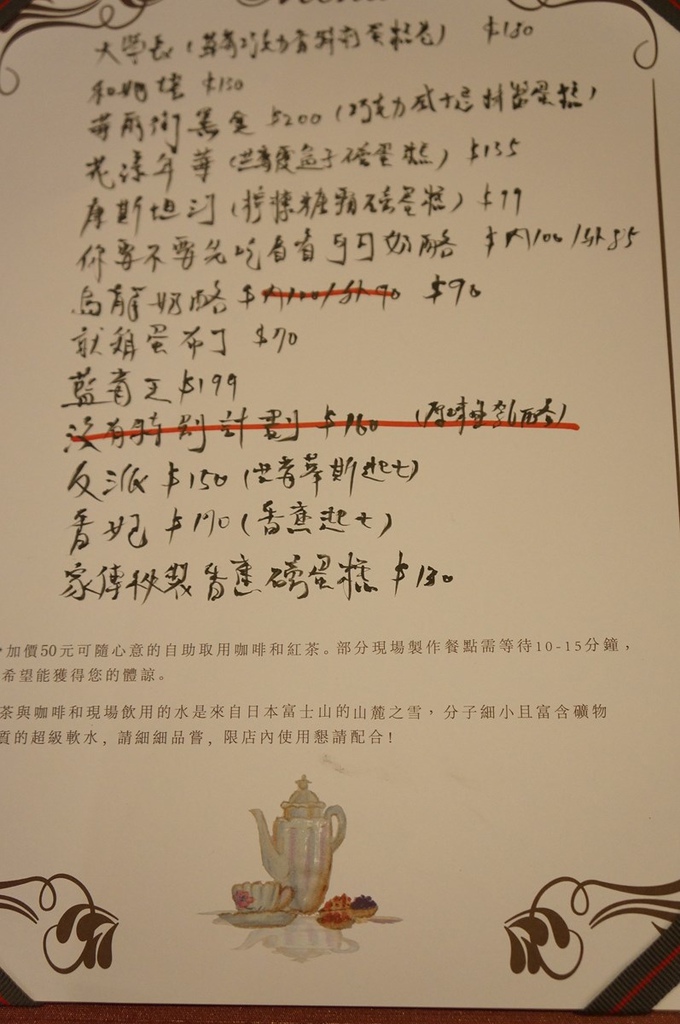 Menu
大學長 (草莓巧克力香料 蛋糕卷) $180
和如 $150
哥 術 美食 $200 (巧克力威士忌 蛋糕)
花漾年華 (芒 子磅蛋糕) $135
摩斯坦河 (檸檬糖霜磅蛋糕) $99
你要不要先吃看看 可可奶酪 $內100/外85
烏龍奶酪 $內100/外90 $90
就雞蛋布丁 $70
藍 芝 $199
沒有特別計劃 $160 (原味重乳酪)
反派 $150 (起士)
香妃 $170 (香蕉起士)
家傳秘製香蕉磅蛋糕 $130
加價50元可隨心意的自助取用咖啡和紅茶。部分現場製作餐點需等待10-15分鐘,
希望能獲得您的體諒。
茶與咖啡和現場飲用的水是來自日本富士山的山麓之雪,分子細小且富含礦物
質的超級軟水, 請細細品嘗, 限店內使用懇請配合!